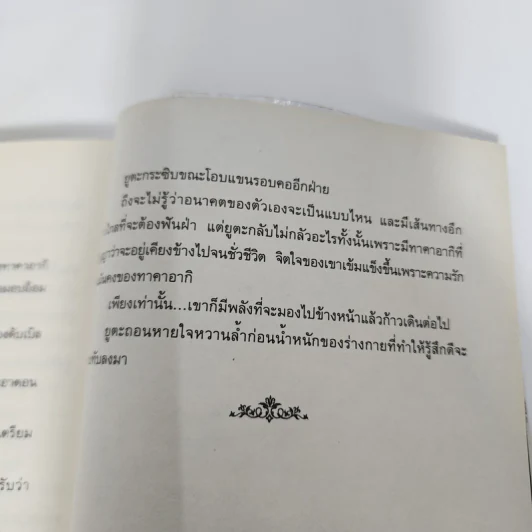 ทาคาอากิ
องดับเบิล
เตรียม
รับว่า
ยูตะกระซิบขณะโอบแขนรอบคออีกฝ่าย
ถึงจะไม่รู้ว่าอนาคตของตัวเองจะเป็นแบบไหน และมีเส้นทางอีก
ที่จะต้องฟันฝ่า แต่ยูตะกลับไม่กลัวอะไรทั้งนั้นเพราะมีทาคาอากิที่
ว่าจะอยู่เคียงข้างไปจนชั่วชีวิต จิตใจของเขาเข้มแข็งขึ้นเพราะความรัก
ของทาคาอากิ
เพียงเท่านั้น...เขาก็มีพลังที่จะมองไปข้างหน้าแล้วก้าวเดินต่อไป
ยูตะถอนหายใจหวานล้ำก่อนน้ำหนักของร่างกายที่ทำให้รู้สึกดีจะ
ทับลงมา